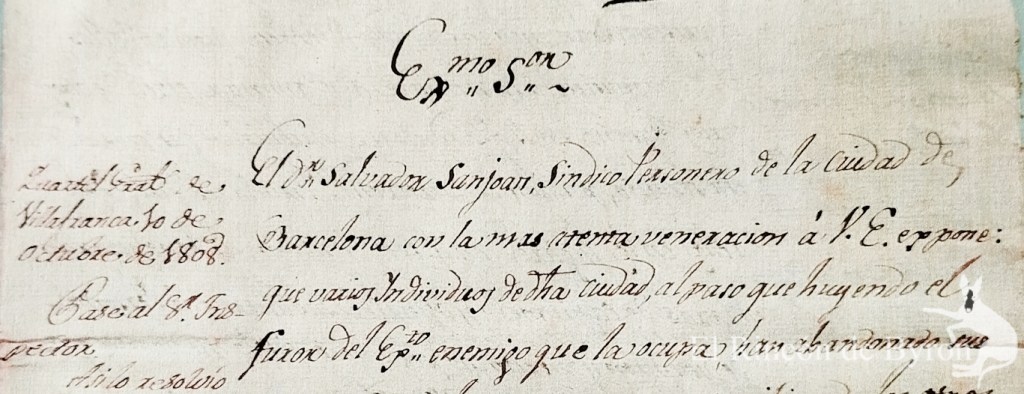 Exmo Sor
El dr Salvador Sanjoan, Sindico Personero de la Ciudad de
Barcelona con la mas atenta veneracion á V. E. expone:
que varios Individuos de dha Ciudad, al paso que huyendo el
furor del Exto enemigo que la ocupa, han abandonado sus
Quartel Gral de
Villafranca 10 de
Octubre de 1808.
Pase al Sr Ins-
pector
Asi lo resolvio
El Rincón de Byron